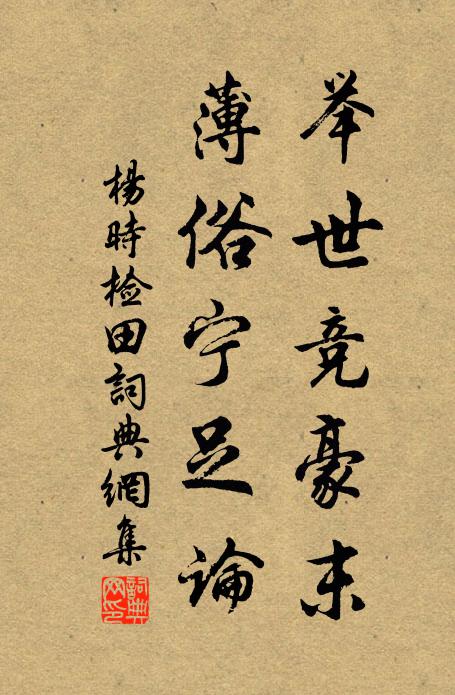 举世竞豪末
薄俗宁足论
楊時检田詞典網集
詞典网印